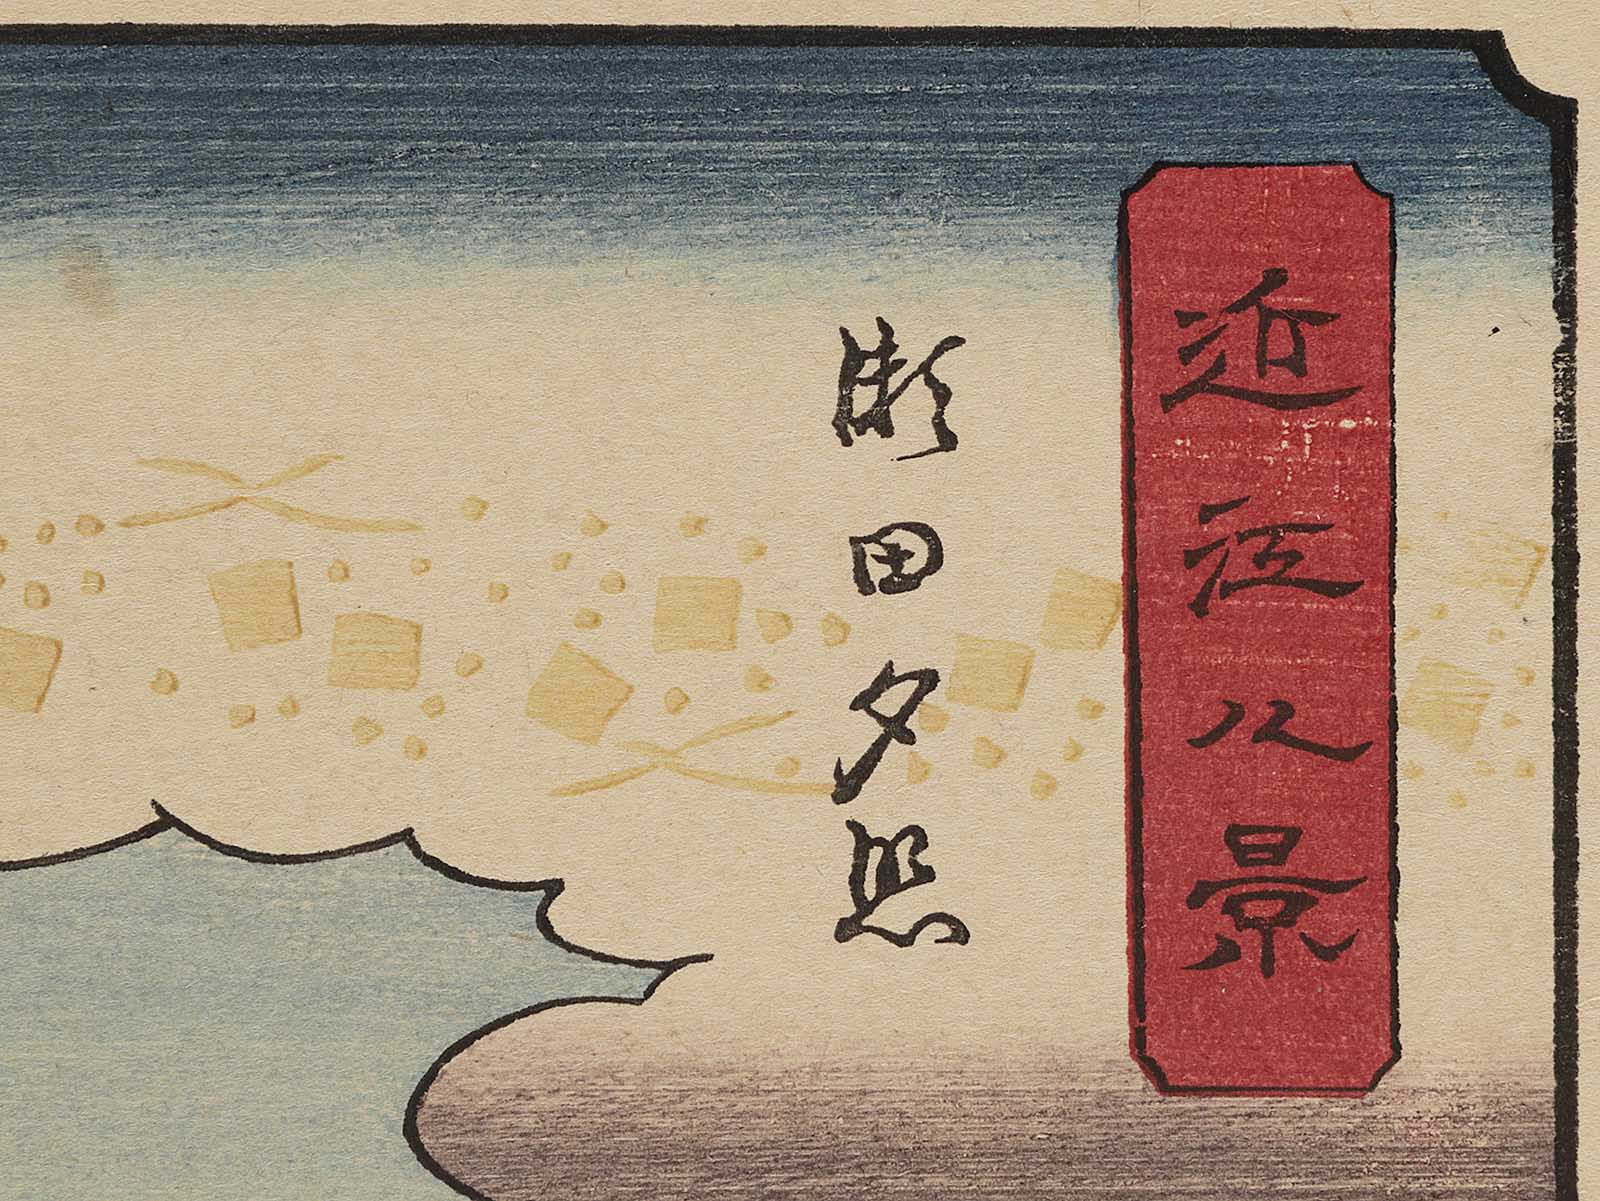 近江八景
瀬田夕照